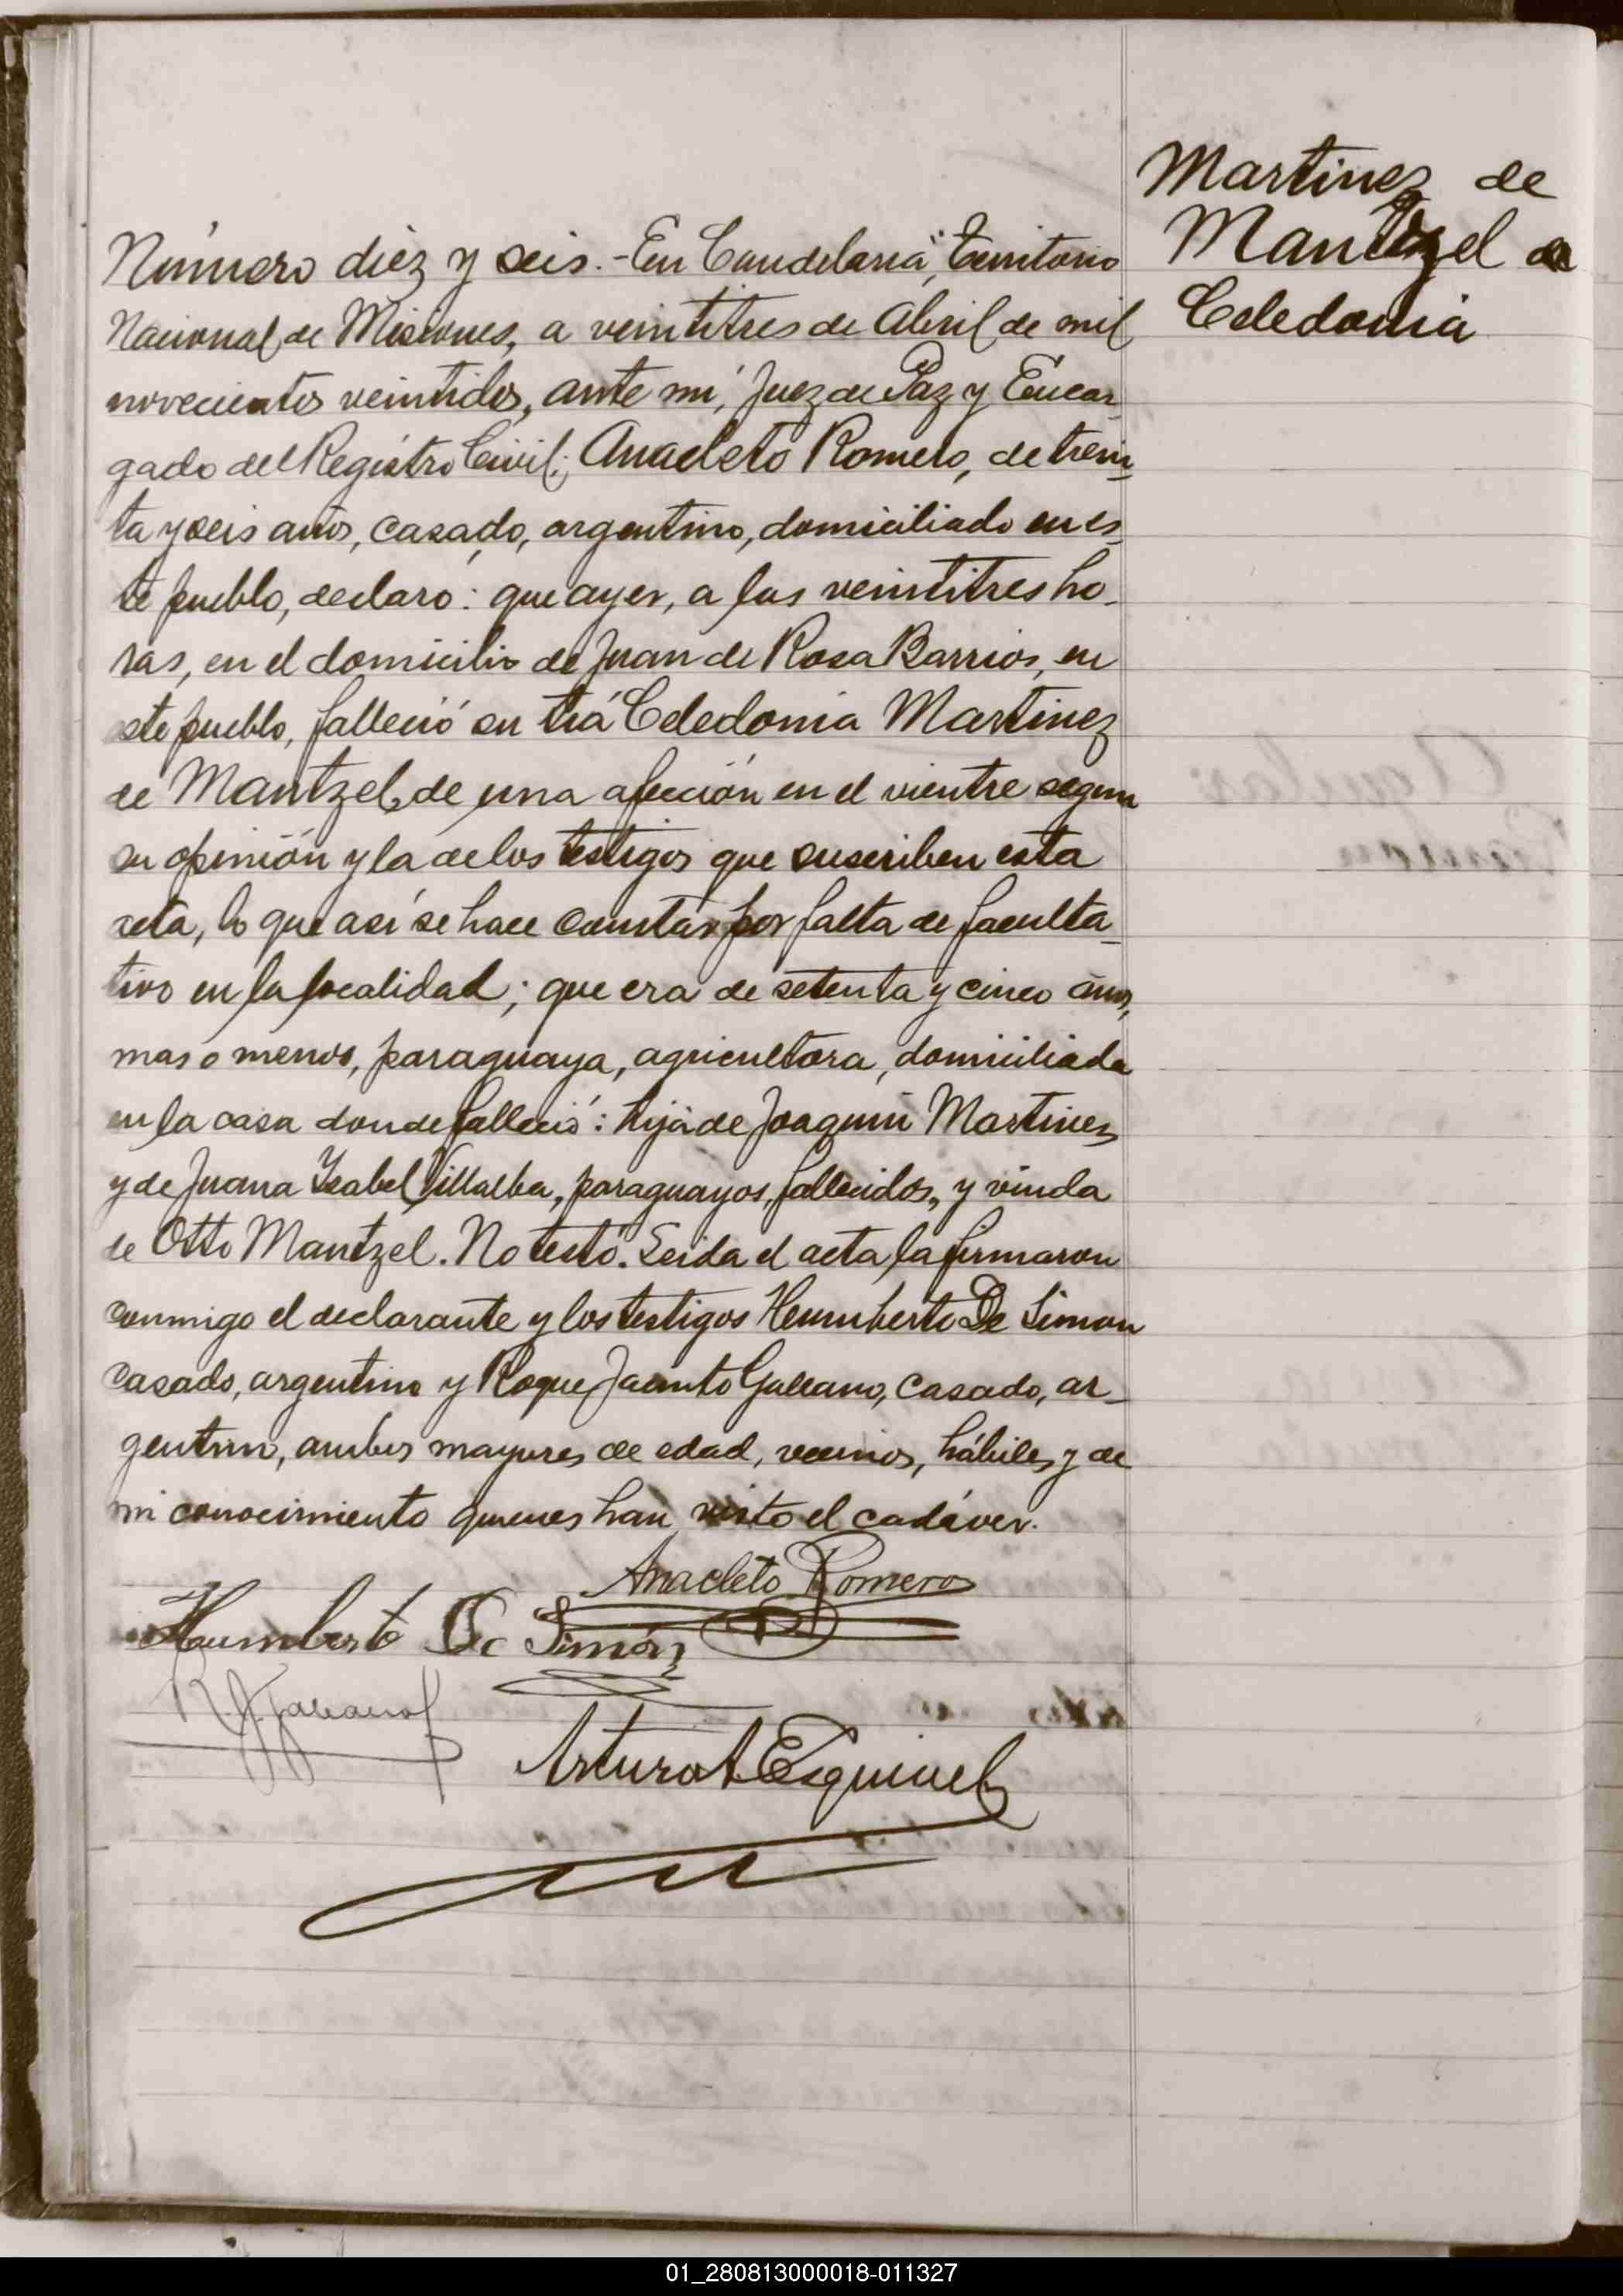 Martinez de
Mantzel
Celedonia
Número diez y seis.- En Candelaria, Territorio
Nacional de Misiones, a veintitres de Abril de mil
novecientos veintidos, ante mi, Juez de Paz y Encar-
gado del Registro Civil; Anacleto Romero, de trein-
ta y seis años, casado, argentino, domiciliado en es-
te pueblo, declaró: que ayer, a las veintitres ho-
ras, en el domicilio de Juan de Rosa Barrios, en
este pueblo, falleció su tia Celedonia Martinez
de Mantzel, de una afección en el vientre segun
su opinión y la de los testigos que suscriben esta
acta, lo que así se hace constar por falta de faculta-
tivo en la localidad; que era de setenta y cinco años,
mas o menos, paraguaya, agricultora, domiciliada
en la casa donde falleció: hija de Joaquin Martinez
y de Juana Isabel Villalba, paraguayos, fallecidos, y viuda
de Otto Mantzel. No testó. Leida el acta la firmaron
conmigo el declarante y los testigos Humberto De Simon
casado, argentino y Roque Jacinto Galeano, casado, ar-
gentino, ambos mayores de edad, vecinos, hábiles y de
mi conocimiento quienes han visto el cadáver.
Anacleto Romero
Humberto De Simón
R. J. Galeano
Arturo A Esquivel
01_280813000018-011327